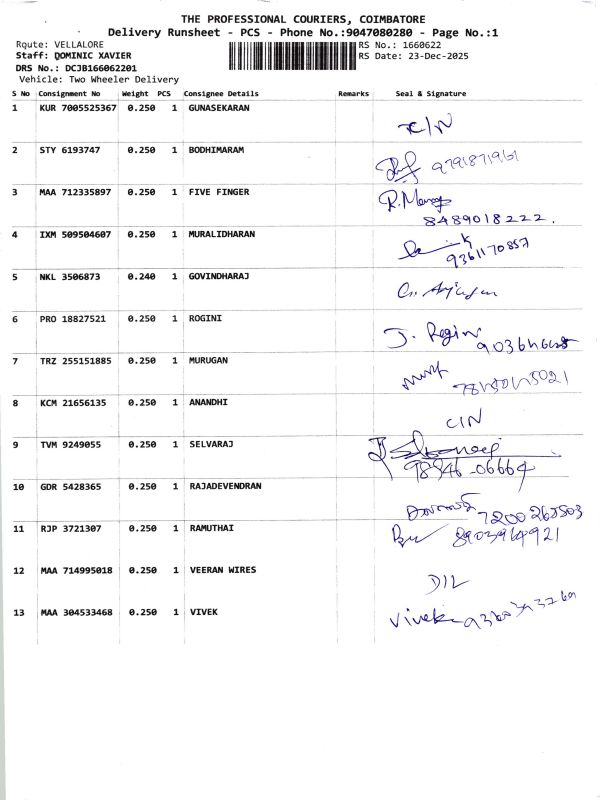 THE PROFESSIONAL COURIERS, COIMBATORE
Delivery Runsheet - PCS - Phone No.:9047080280 - Page No.:1
Route: VELLALORE RS No.: 1660622
Staff: DOMINIC XAVIER RS Date: 23-Dec-2025
DRS No.: DCJB166062201
Vehicle: Two Wheeler Delivery
S No Consignment No Weight PCS Consignee Details Remarks Seal & Signature
1 KUR 7005525367 0.250 1 GUNASEKARAN
C/N
2 STY 6193747 0.250 1 BODHIMARAM
9791871961
3 MAA 712335897 0.250 1 FIVE FINGER R.Manoj
8489018222.
4 IXM 509504607 0.250 1 MURALIDHARAN
9361170857
5 NKL 3506873 0.240 1 GOVINDHARAJ
6 PRO 18827521 0.250 1 ROGINI
J. Rogini
7 TRZ 255151885 0.250 1 MURUGAN
8 KCM 21656135 0.250 1 ANANDHI
C/N
9 TVM 9249055 0.250 1 SELVARAJ
98946-06664
10 GDR 5428365 0.250 1 RAJADEVENDRAN
7200265503
11 RJP 3721307 0.250 1 RAMUTHAI
8903964921
12 MAA 714995018 0.250 1 VEERAN WIRES
D/L
13 MAA 304533468 0.250 1 VIVEK Vivek